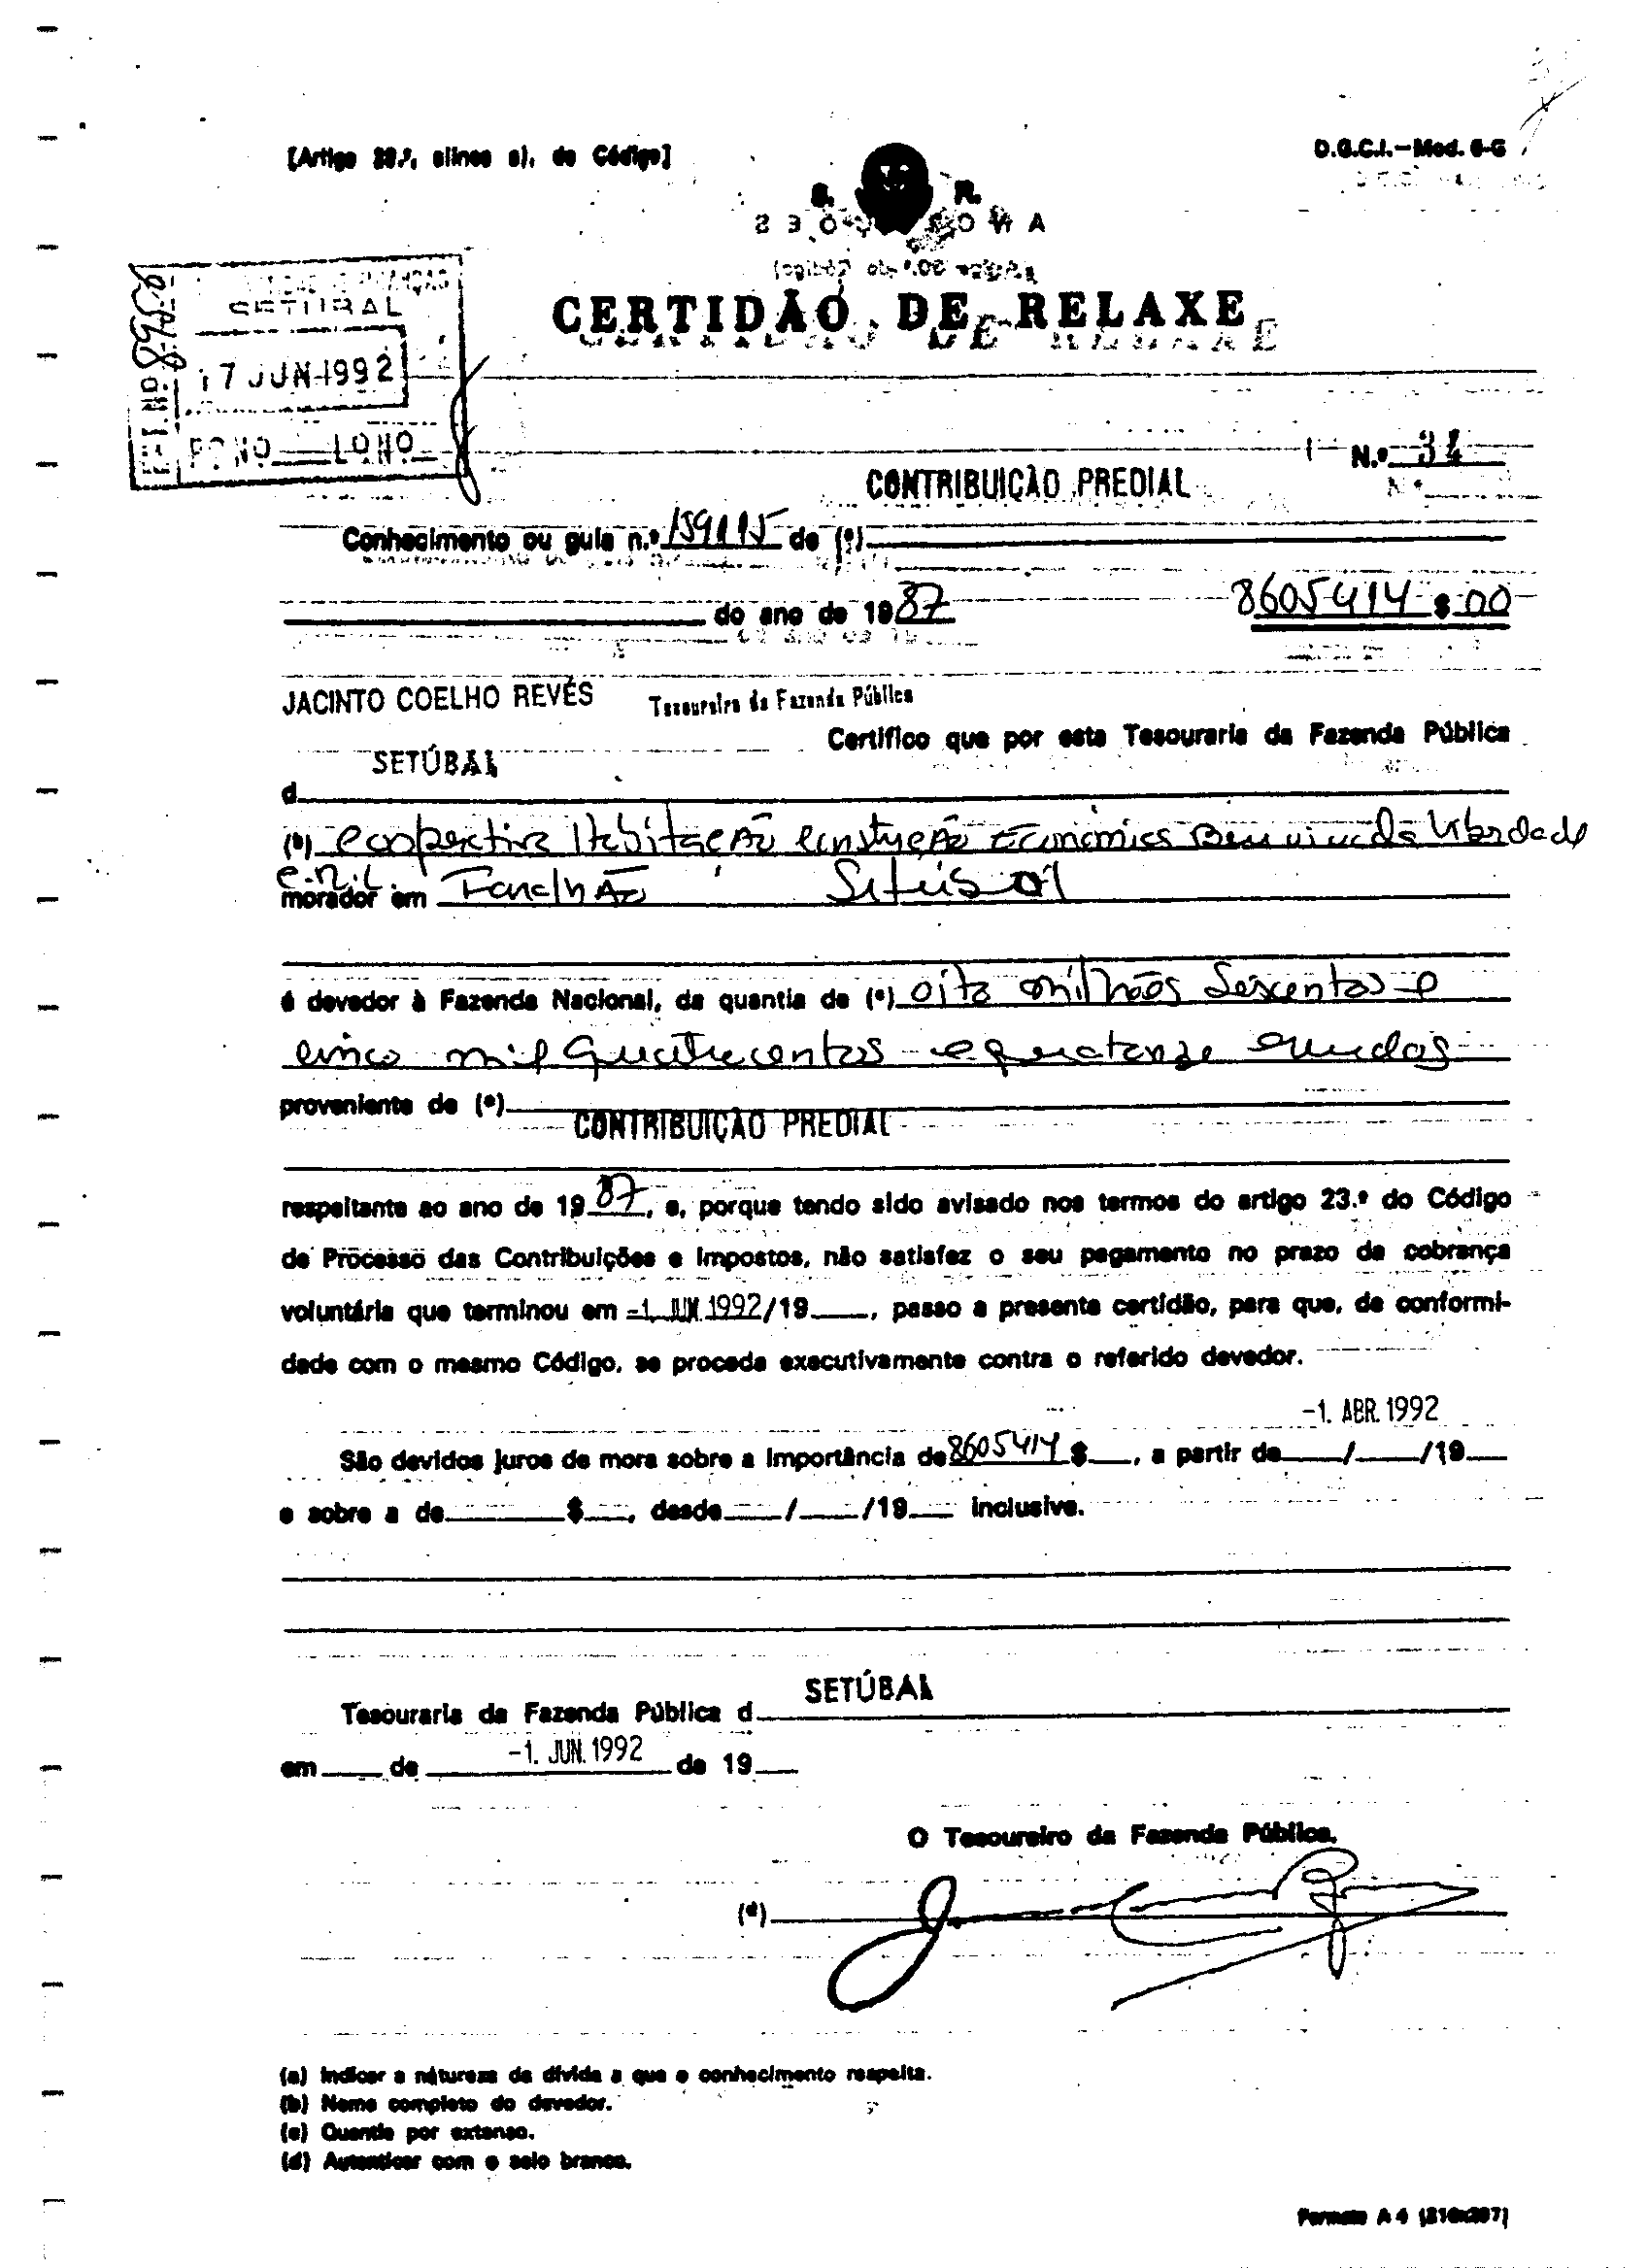 D.G.C.I.—Mod. 6-G
[Artigo alínea a), do Código]
S. R.
SETÚBAL
17 JUN 1992
CERTIDÃO DE RELAXE
N.º 34
CONTRIBUIÇÃO PREDIAL
Conhecimento ou guia n.º 159115 de (a)
do ano de 1987 8605414$00
JACINTO COELHO REVÉS Tesoureiro da Fazenda Pública
Certifico que por esta Tesouraria da Fazenda Pública
SETÚBAL
d
(b) Cooperativa Habitação Construção Económica Bem vinda Liberdade
C.R.L.
morador em Faralhão Setúbal
é devedor à Fazenda Nacional, da quantia de (c) oito milhões seiscentos e
cinco mil quatrocentos e quatorze escudos
proveniente de (a)
CONTRIBUIÇÃO PREDIAL
respeitante ao ano de 1987, e, porque tendo sido avisado nos termos do artigo 23.º do Código
de Processo das Contribuições e Impostos, não satisfez o seu pagamento no prazo da cobrança
voluntária que terminou em -1. JUN. 1992/19 , passo a presente certidão, para que, de conformi-
dade com o mesmo Código, se proceda executivamente contra o referido devedor.
-1. ABR. 1992
São devidos juros de mora sobre a importância de 8605414 $ , a partir de / /19
e sobre a de $ , desde / /19 inclusive.
SETÚBAL
Tesouraria da Fazenda Pública d
em de -1. JUN. 1992 de 19
O Tesoureiro da Fazenda Pública,
(d)
(a) Indicar a natureza da dívida a que o conhecimento respeita.
(b) Nome completo do devedor.
(c) Quantia por extenso.
(d) Autenticar com o selo branco.
Formato A 4 (210x297)